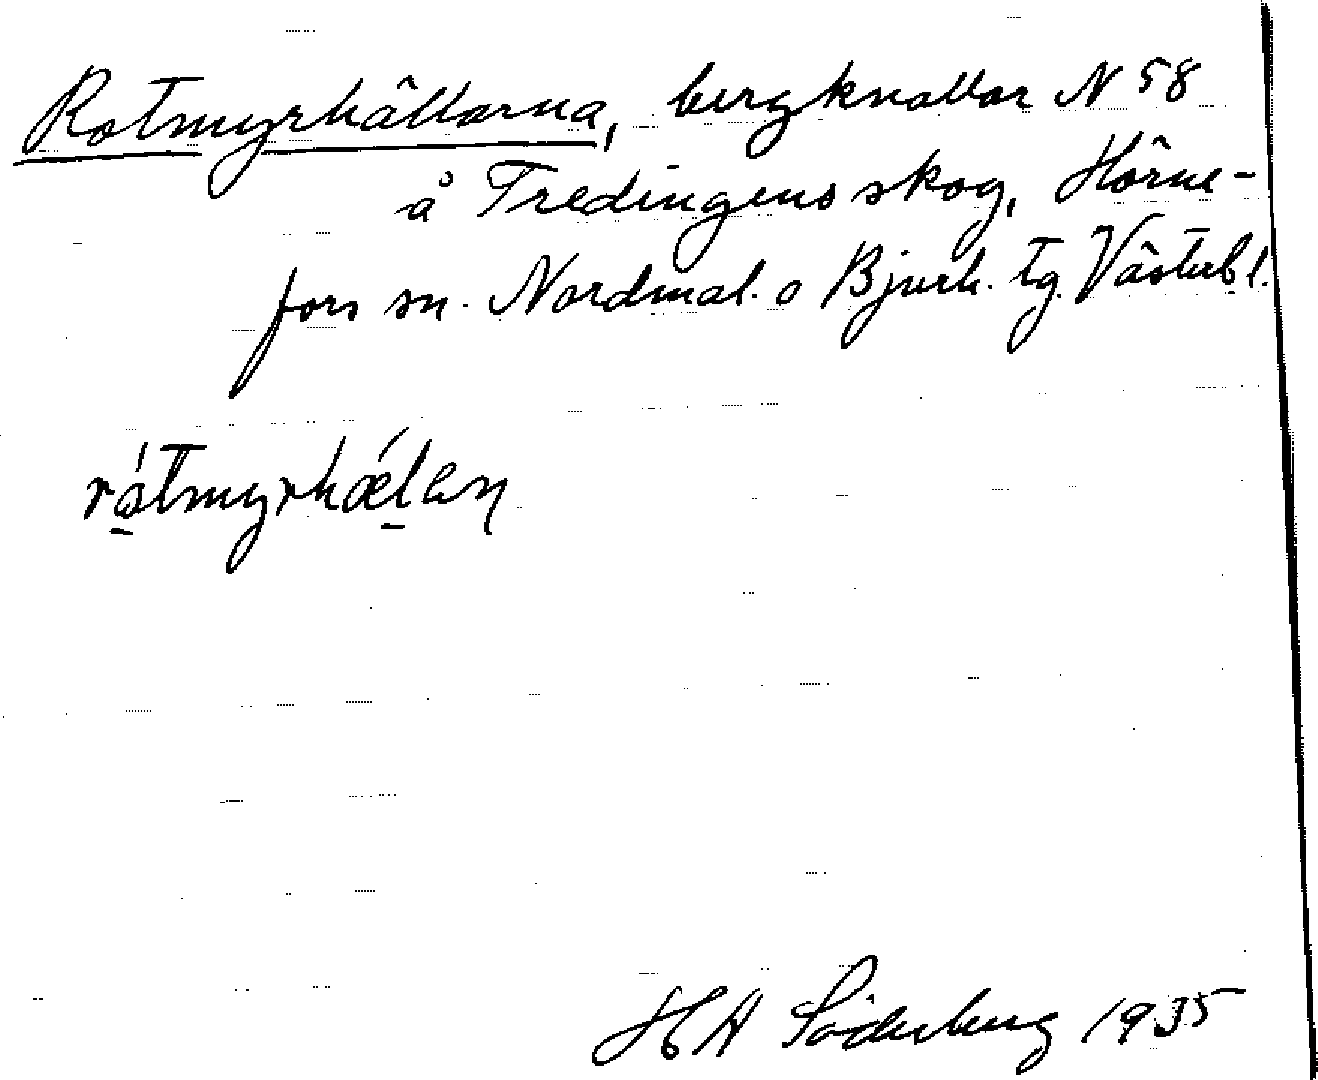 Rotmyrhällorna, bergknallar N 58
å Tredingens skog, Hörne-
fors sn. Nordmal. o Bjurh. tg. Västerb l.
rótmyrhǽlan
H A Söderberg 1935